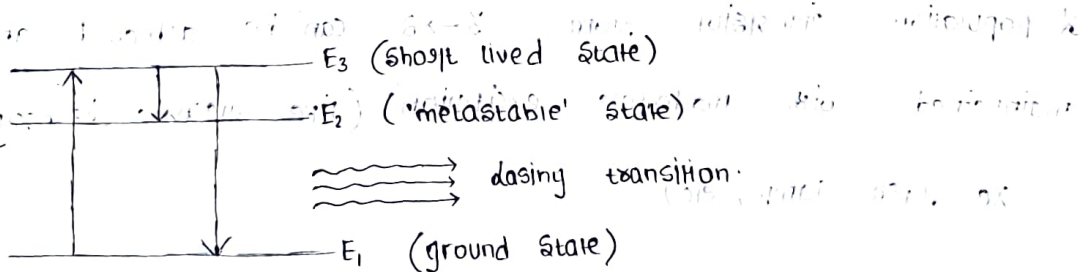 E₃ (Short lived State)
E₂ ('metastable' State)
dasing transition.
E₁ (ground State)